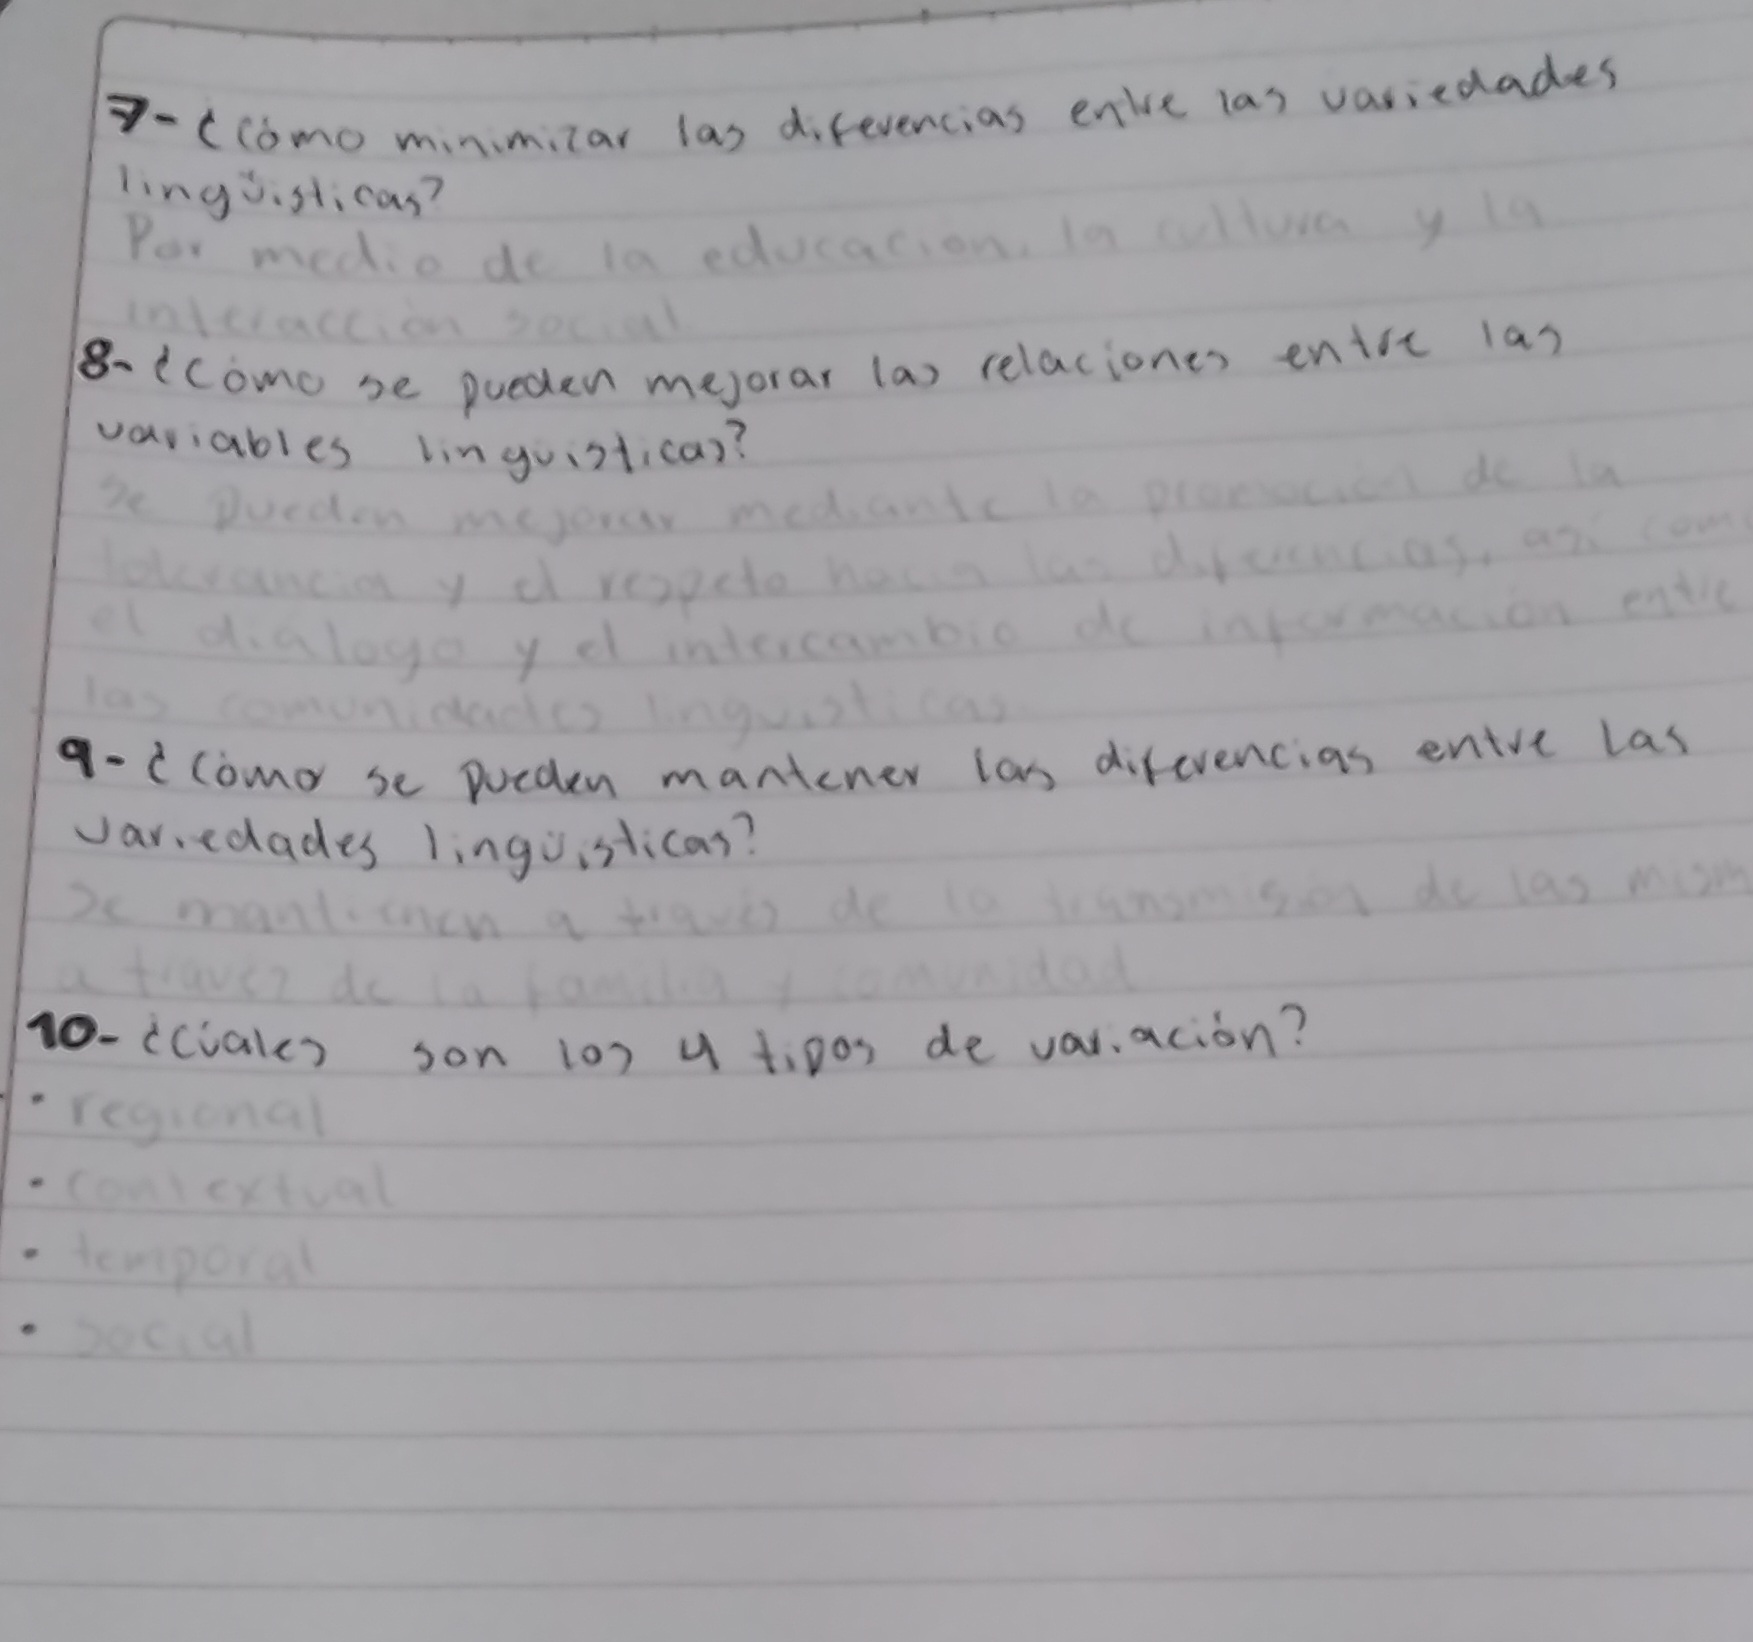 7- ¿Cómo minimizar las diferencias entre las variedades
lingüisticas?
Por medio de la educación, la cultura y la
interacción social
8- ¿Cómo se pueden mejorar las relaciones entre las
variables linguisticas?
se pueden mejorar mediante la promoción de la
tolerancia y el respeto hacia las diferencias, así com
el dialogo y el intercambio de información entre
las comunidades linguisticas
9- ¿Cómo se pueden mantener las diferencias entre las
variedades lingüisticas?
se mantienen a través de la transmisión de las mism
a travez de la familia y comunidad
10- ¿Cúales son los 4 tipos de variación?
• regional
• contextual
• temporal
• social